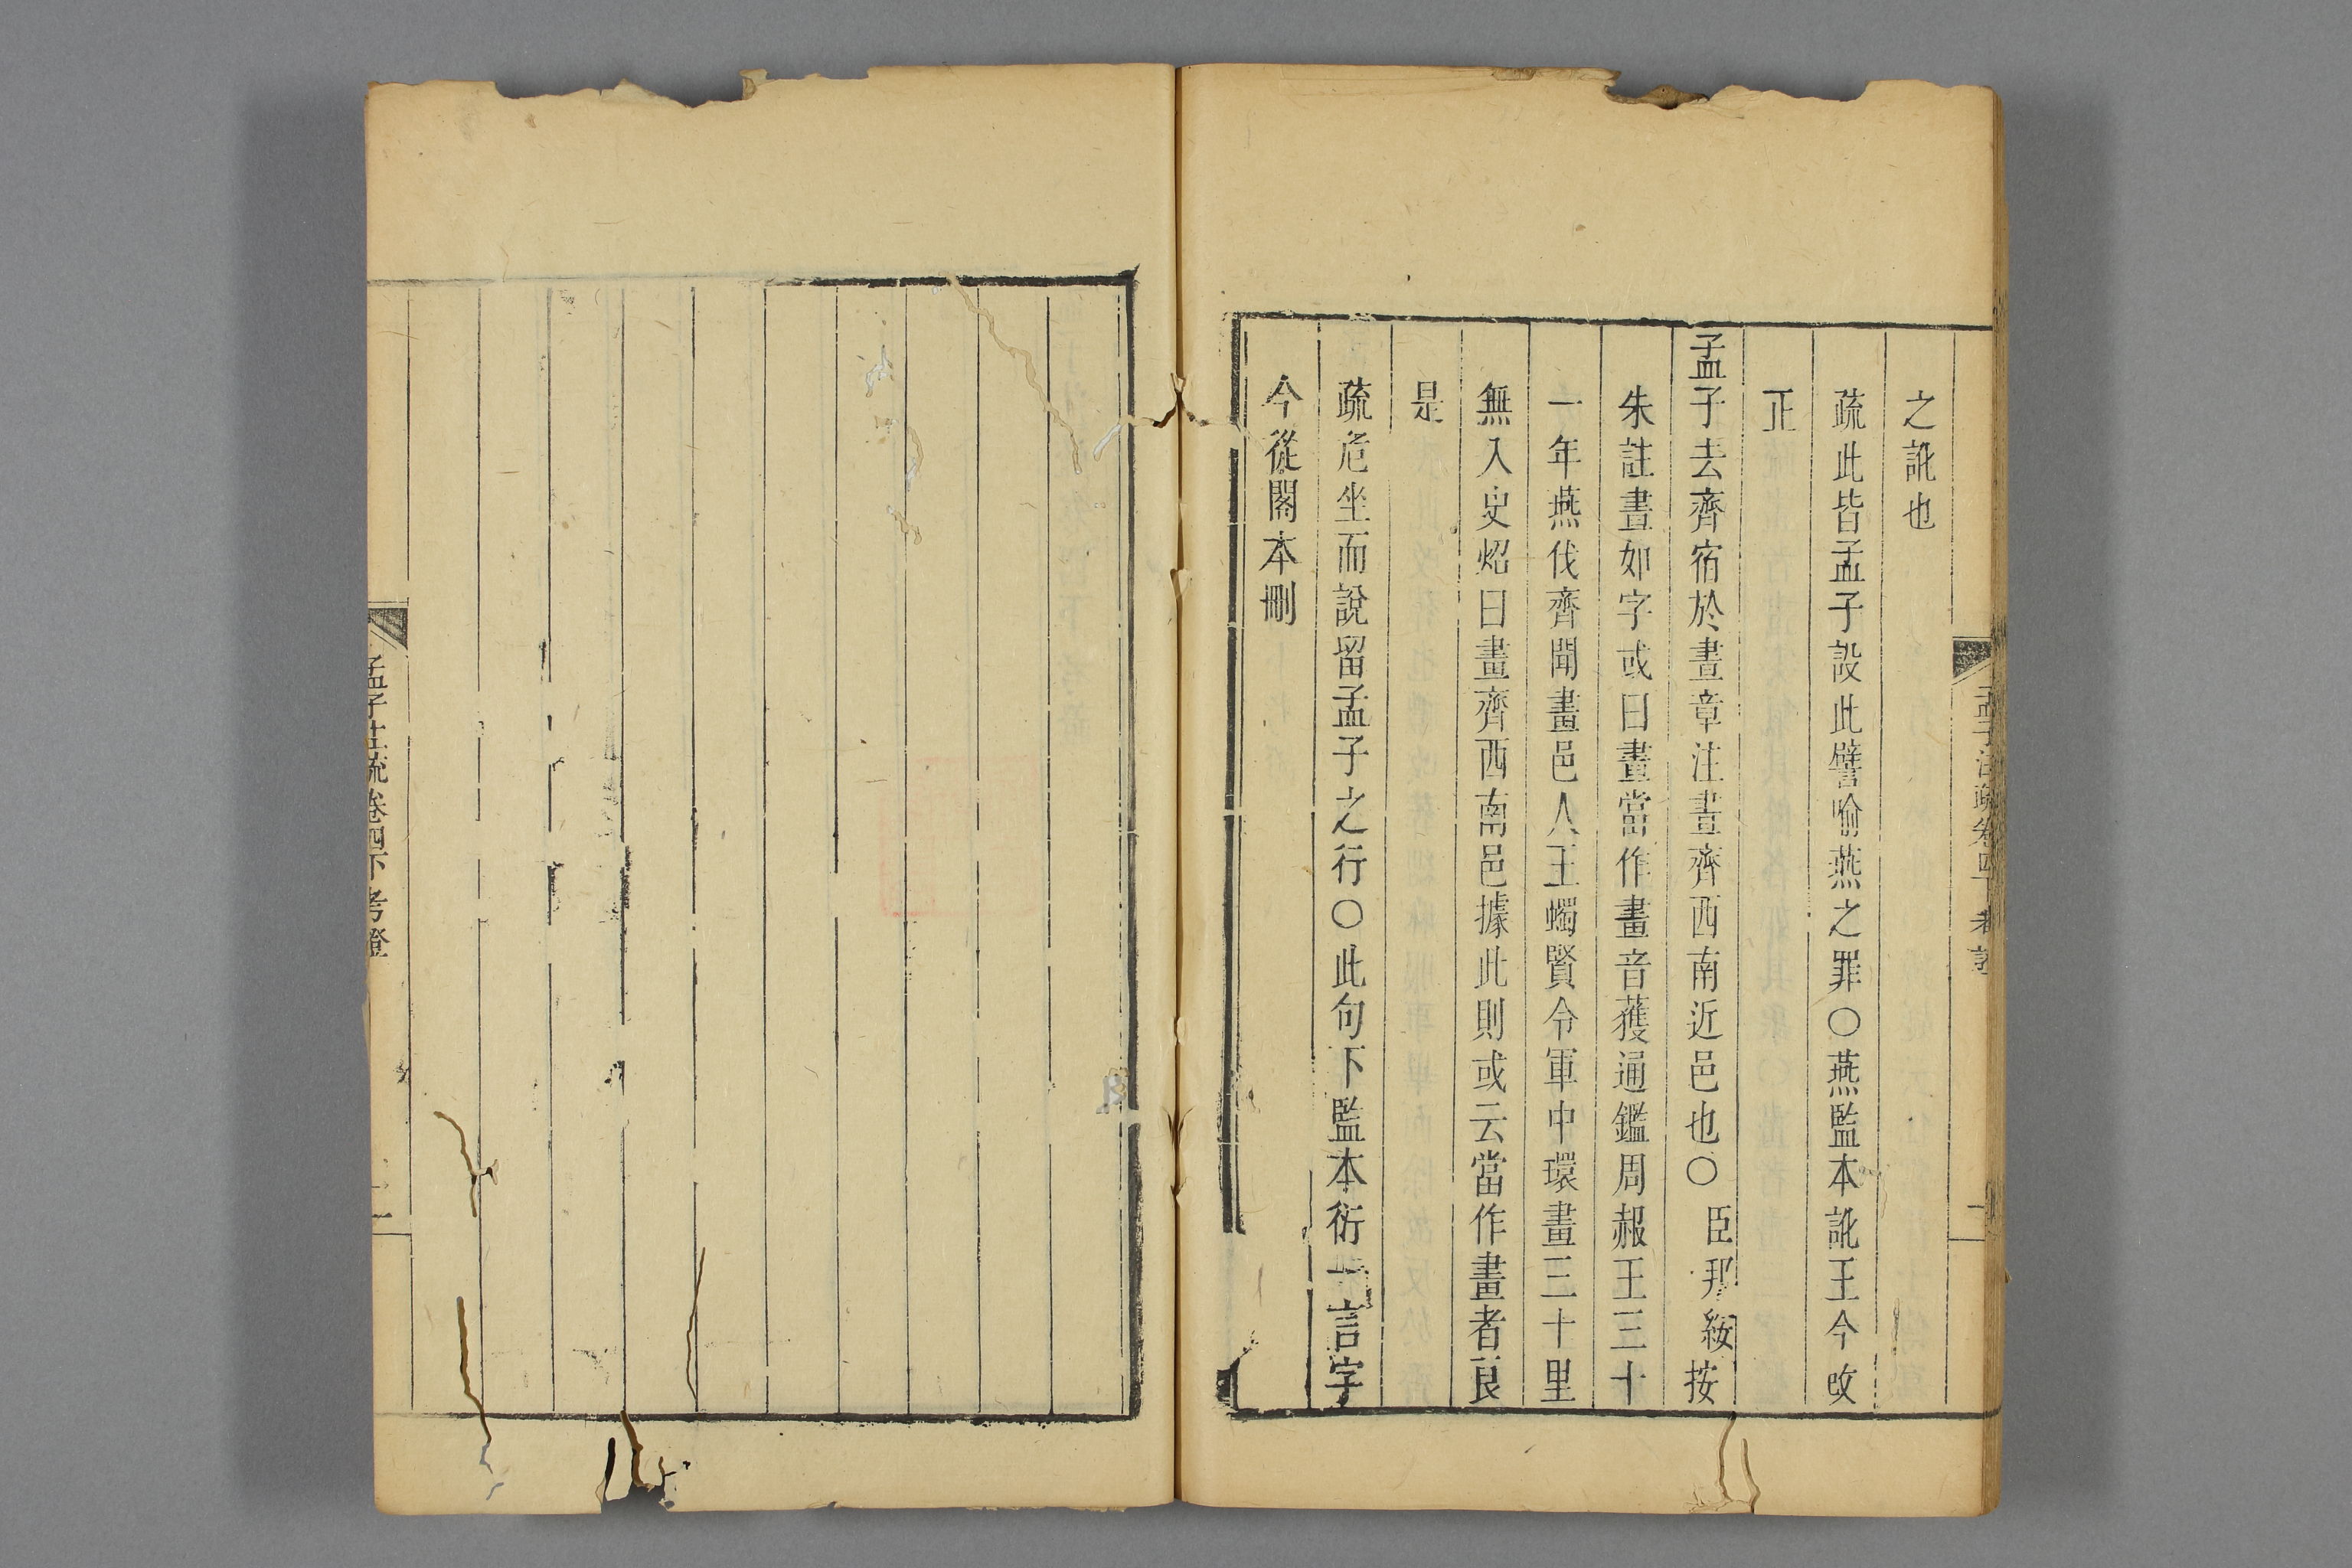 孟子注疏卷四下考證
之訛也
疏此皆孟子設此譬喻燕之罪〇燕監本訛王今改
正
孟子去齊宿於晝章注晝齊西南近邑也〇臣邦綏按
朱註晝如字或曰晝當作畫音獲通鑑周赧王三十
一年燕伐齊聞畫邑人王蠋賢令軍中環畫三十里
無入史炤曰畫齊西南邑據此則或云當作畫者良
是
疏危坐而說留孟子之行〇此句下監本衍一言字
今從閣本刪
孟子注疏卷四下考證